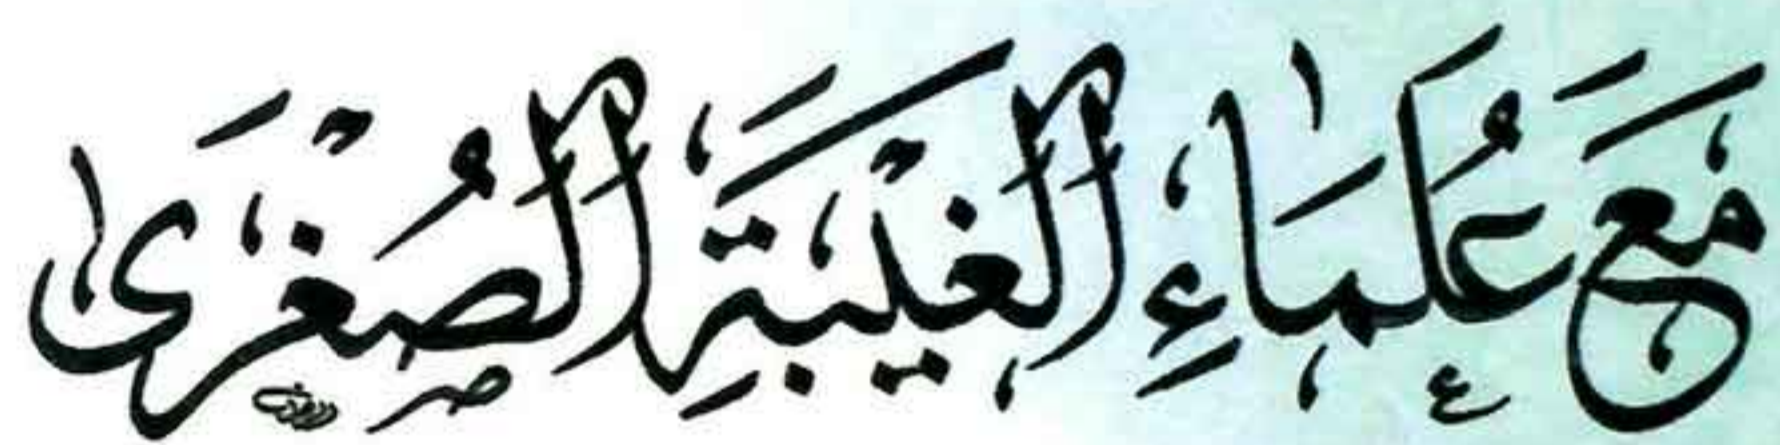 مَعَ عُلَمَاءِ الْغَيْبَةِ الصُّغْرَى